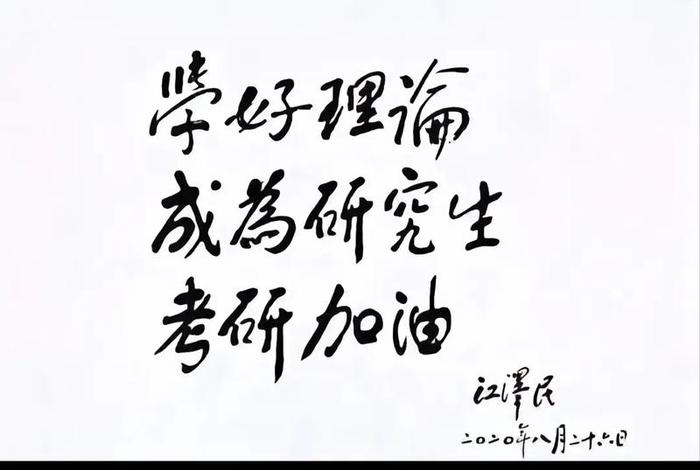 學好理論
成為研究生
考研加油
江澤民
二〇二〇年八月二十六日